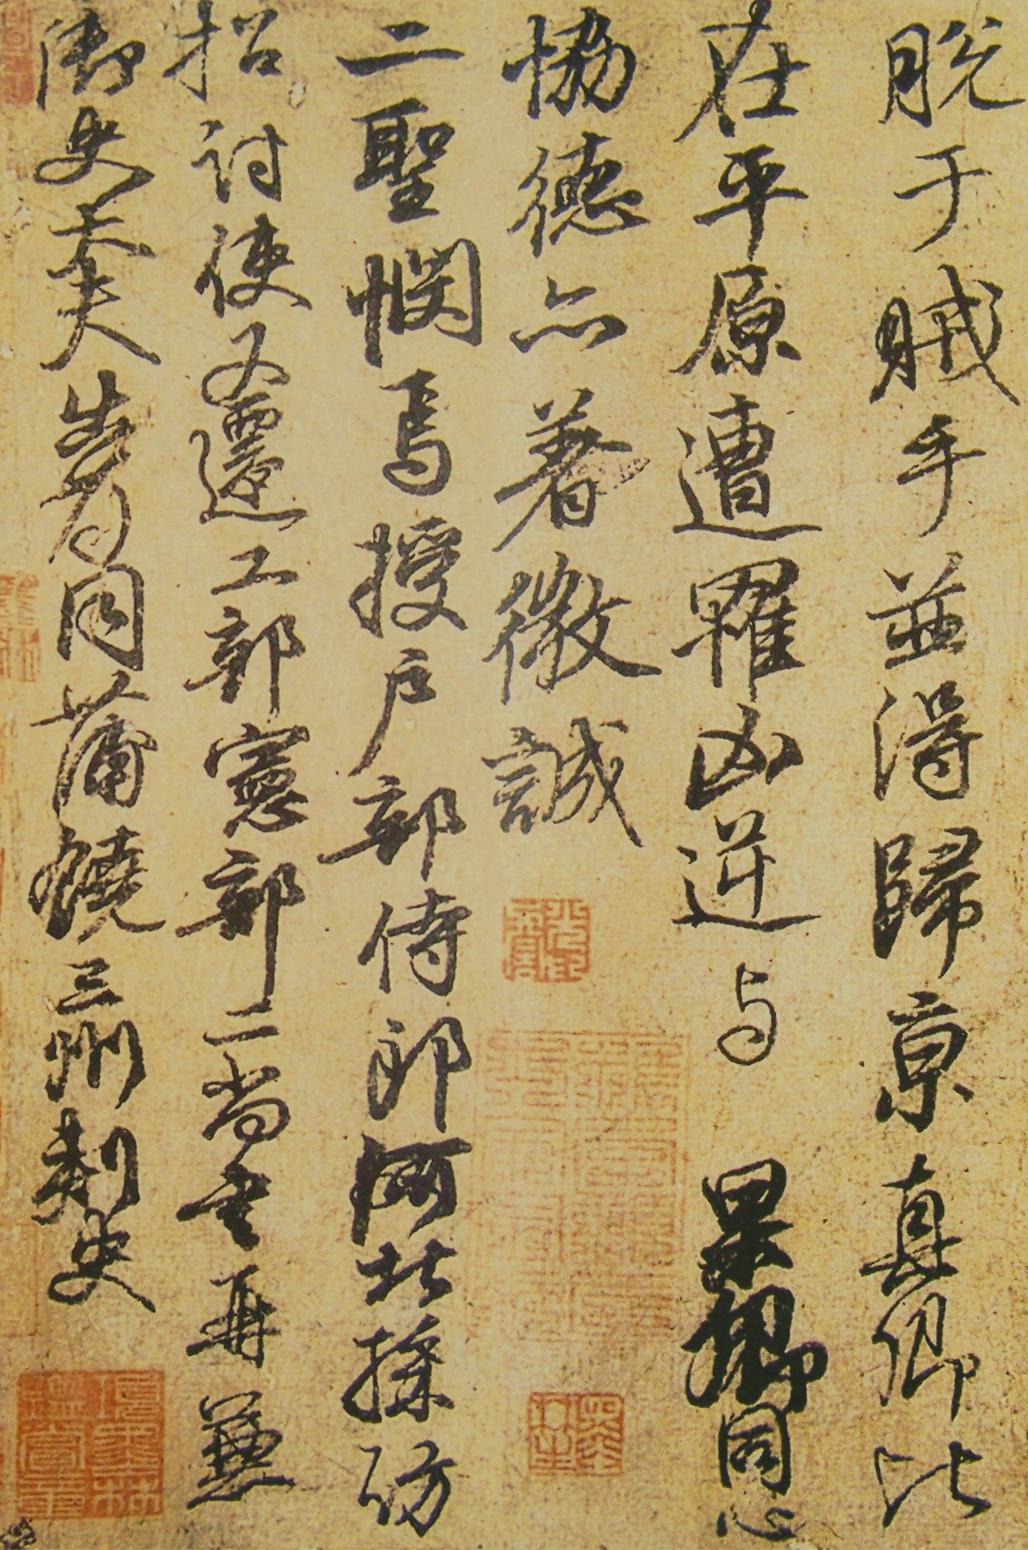 脱于賊手並得歸京真卿比
在平原遭罹凶逆与杲卿同心
恊德亦著微誠
二聖憫焉授户部侍郎河北採訪
招討使又遷工部憲部二尚書再兼
御史大夫出為同蒲饒三州刺史